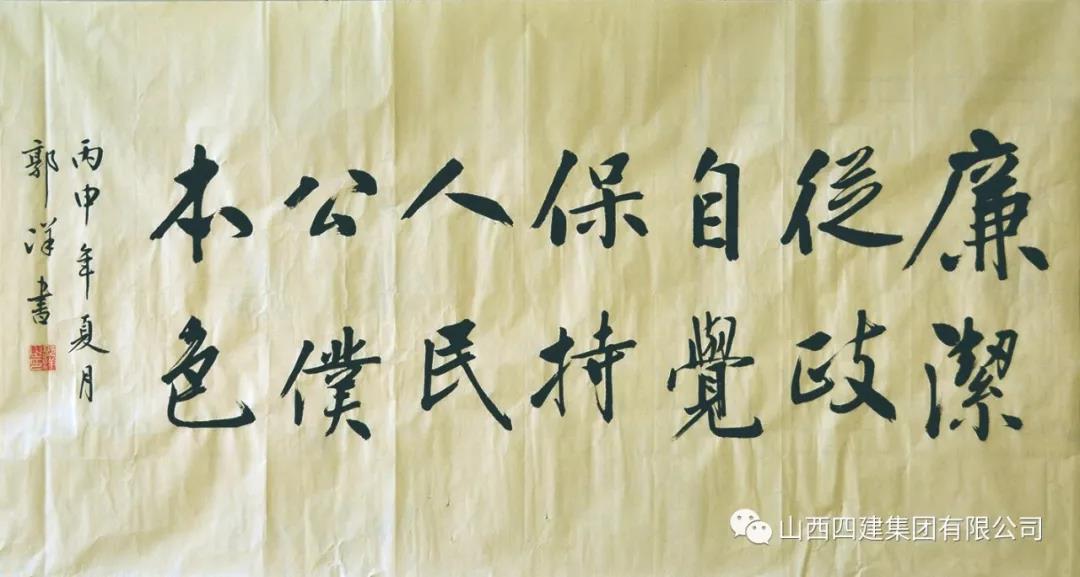 廉潔
從政
自覺
保持
人民
公僕
本色
丙申年夏月
郭洋書
山西四建集团有限公司